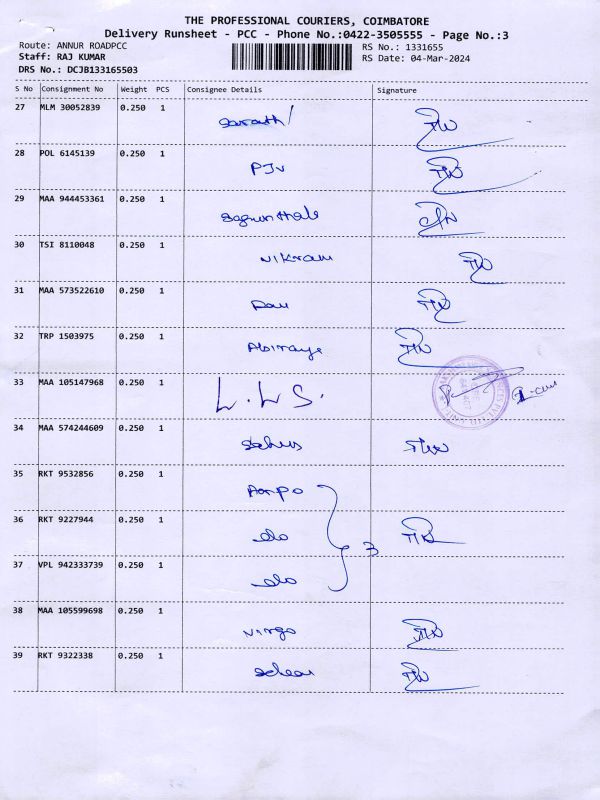 THE PROFESSIONAL COURIERS, COIMBATORE
Delivery Runsheet - PCC - Phone No.:0422-3505555 - Page No.:3
Route: ANNUR ROADPCC
RS No.: 1331655
Staff: RAJ KUMAR
RS Date: 04-Mar-2024
DRS No.: DCJB133165503
S No Consignment No Weight PCS Consignee Details Signature
27 MLM 30052839 0.250 1
Sarath
28 POL 6145139 0.250 1
PJV
29 MAA 944453361 0.250 1
30 TSI 8110048 0.250 1
Vikram
31 MAA 573522610 0.250 1
32 TRP 1503975 0.250 1
33 MAA 105147968 0.250 1
L.W.S.
34 MAA 574244609 0.250 1
35 RKT 9532856 0.250 1
36 RKT 9227944 0.250 1
do 3
37 VPL 942333739 0.250 1
do
38 MAA 105599698 0.250 1
Virgo
39 RKT 9322338 0.250 1